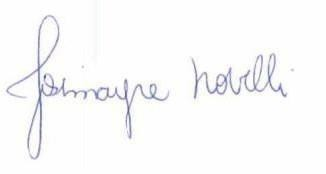 Josimayre Novelli